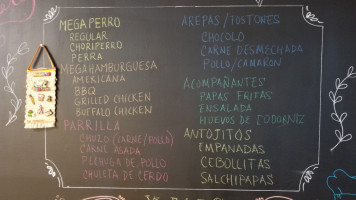 MEGA PERRO
REGULAR
CHORIPERRO
PERRA
MEGA HAMBURGUESA
AMERICANA
BBQ
GRILLED CHICKEN
BUFFALO CHICKEN
PARRILLA
CHUZO (CARNE/POLLO)
CARNE ASADA
PECHUGA DE POLLO
CHULETA DE CERDO
AREPAS/TOSTONES
CHOCOLO
CARNE DESMECHADA
POLLO/CAMARON
ACOMPAÑANTES
PAPAS FRITAS
ENSALADA
HUEVOS DE CODORNIZ
ANTOJITOS
EMPANADAS
CEBOLLITAS
SALCHIPAPAS